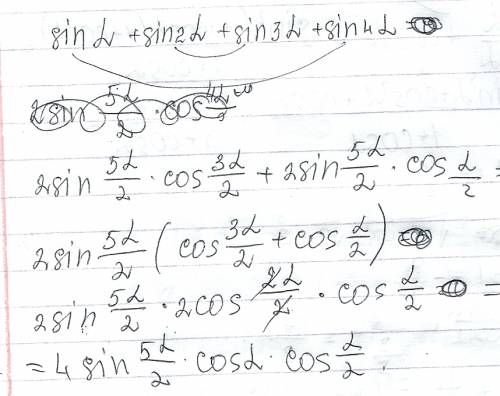 sin α + sin2α + sin3α + sin4α =
2sin 5α/2 · cos 3α/2 + 2sin 5α/2 · cos α/2 =
2sin 5α/2 ( cos 3α/2 + cos α/2 ) =
2sin 5α/2 · 2cos 2α/2 · cos α/2 =
= 4 sin 5α/2 · cosα · cos α/2 .